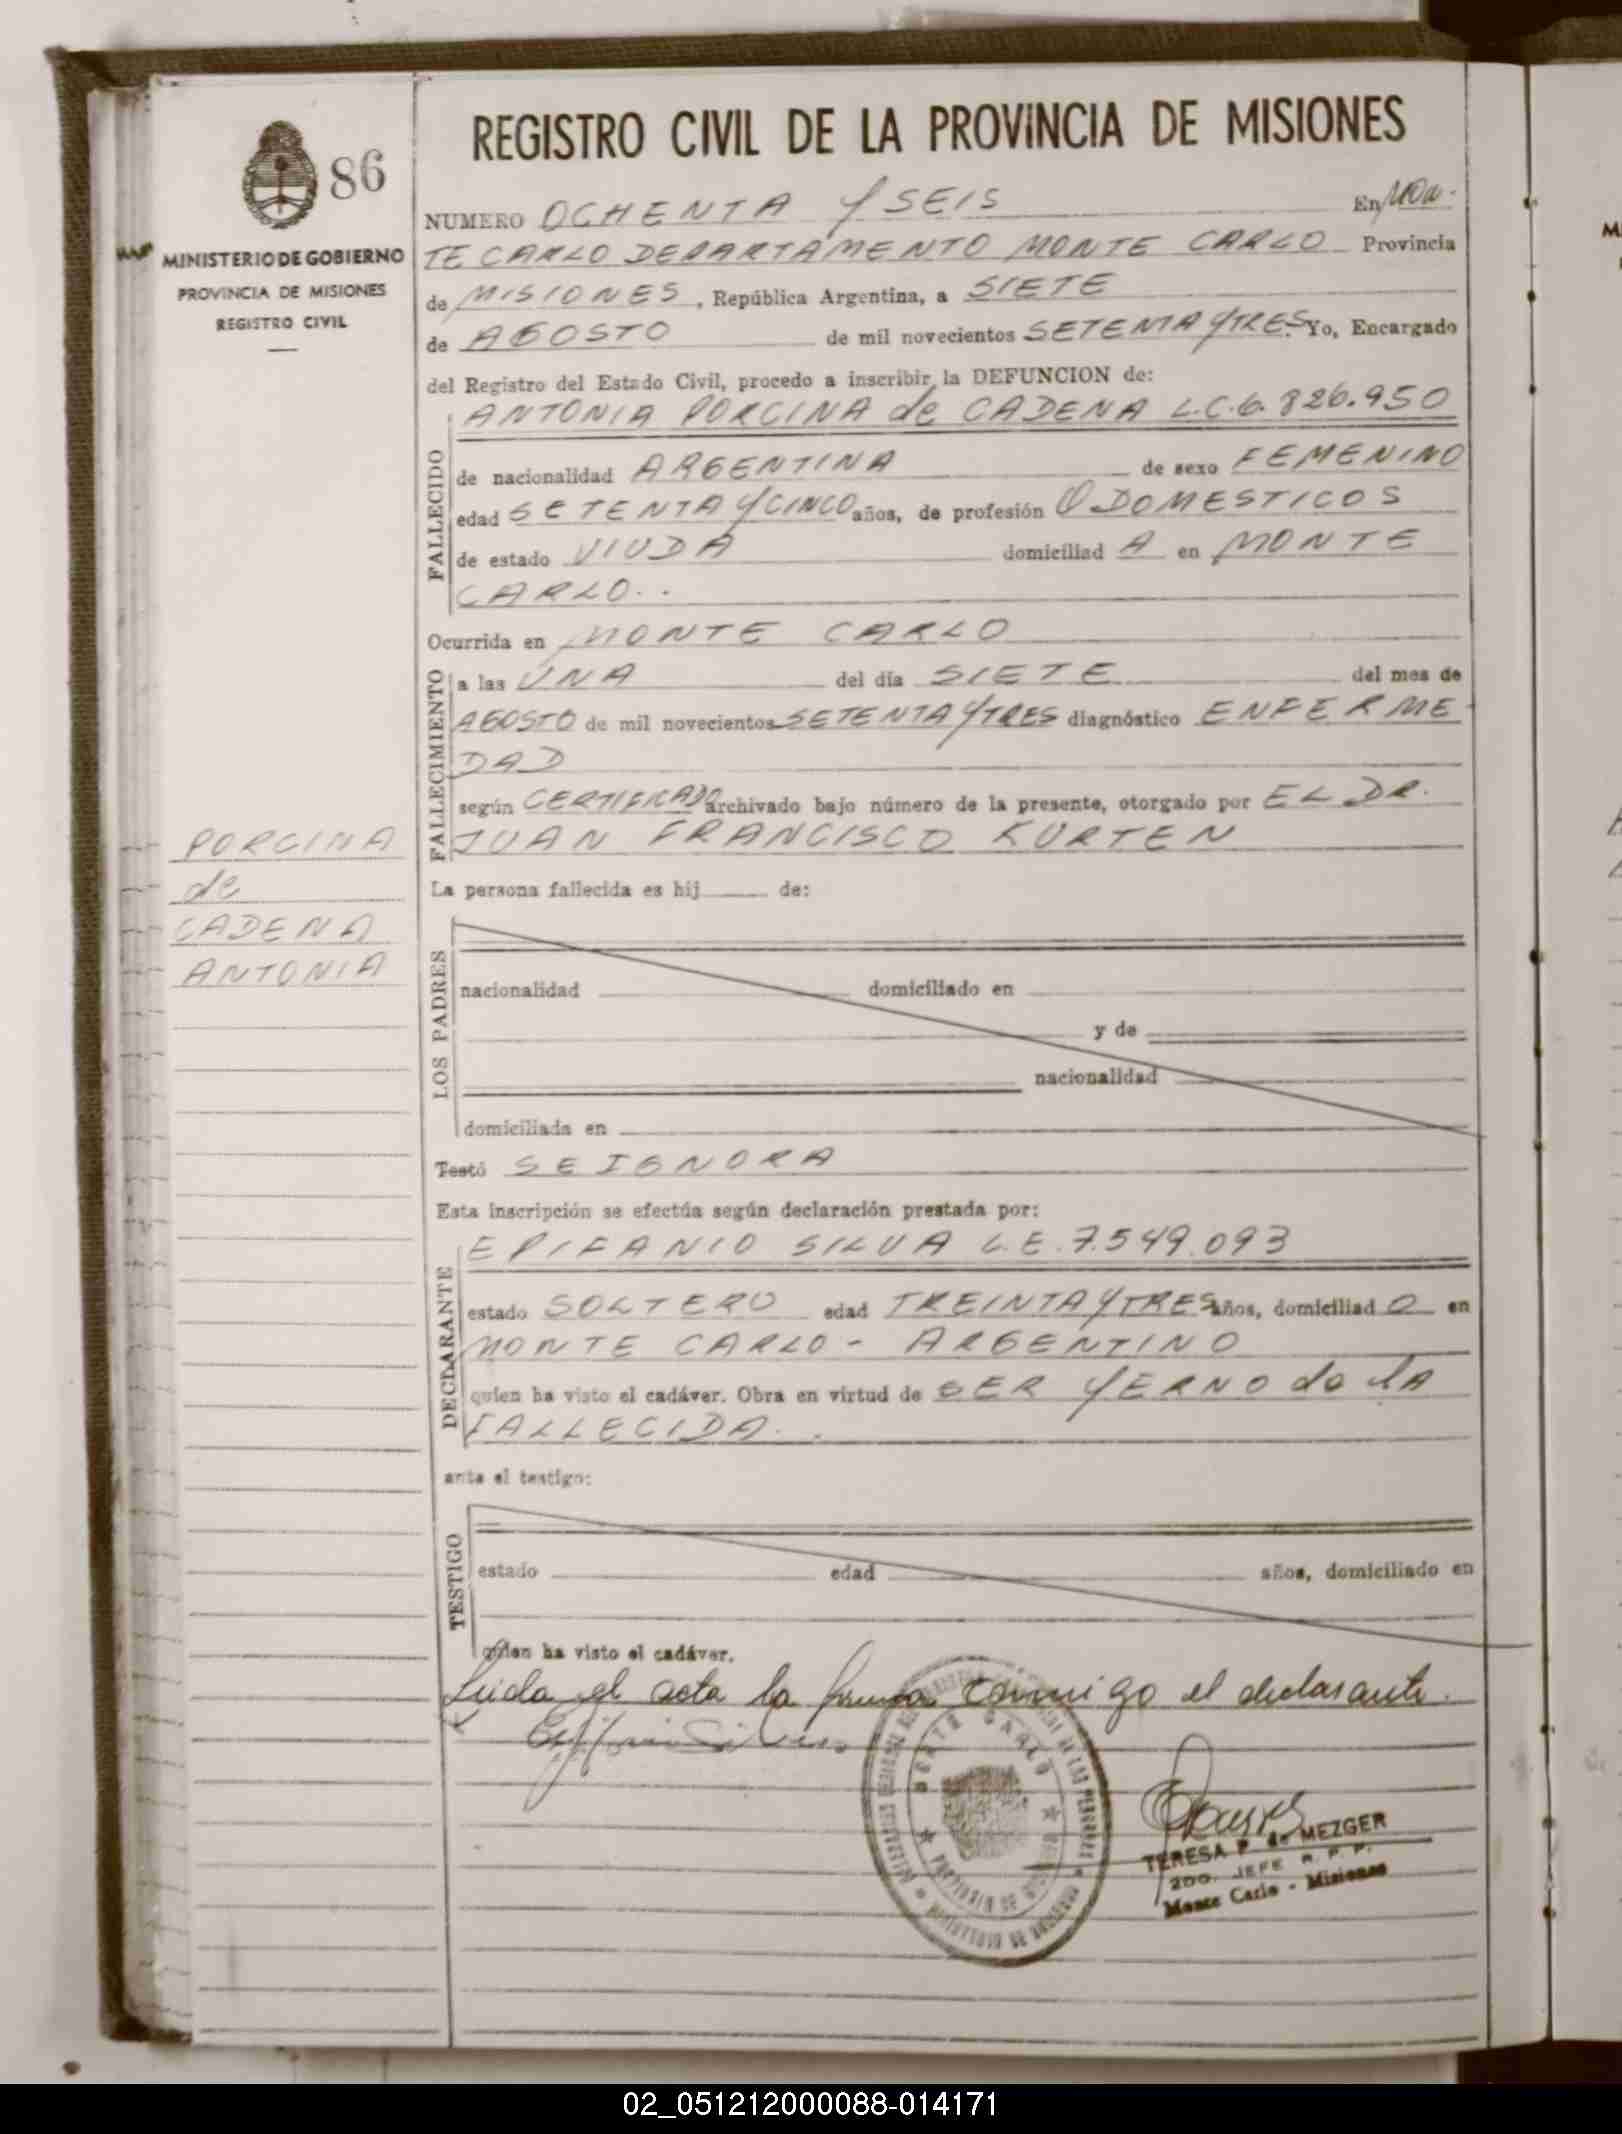 REGISTRO CIVIL DE LA PROVINCIA DE MISIONES
86
MINISTERIO DE GOBIERNO
PROVINCIA DE MISIONES
REGISTRO CIVIL
NUMERO OCHENTA Y SEIS En MON-
TE CARLO DEPARTAMENTO MONTE CARLO Provincia
de MISIONES, República Argentina, a SIETE
de AGOSTO de mil novecientos SETENTA Y TRES. Yo, Encargado
del Registro del Estado Civil, procedo a inscribir la DEFUNCION de:
ANTONIA PORCINA de CADENA L.C.6.826.950
FALLECIDO
de nacionalidad ARGENTINA de sexo FEMENINO
edad SETENTA Y CINCO años, de profesión Q DOMESTICOS
de estado VIUDA domiciliad A en MONTE
CARLO..
Ocurrida en MONTE CARLO
FALLECIMIENTO
a las UNA del día SIETE del mes de
AGOSTO de mil novecientos SETENTA Y TRES diagnóstico ENFERME-
DAD
según CERTIFICADO archivado bajo número de la presente, otorgado por EL DR.
JUAN FRANCISCO KURTEN
PORCINA
de
CADENA
ANTONIA
La persona fallecida es hij de:
LOS PADRES
nacionalidad domiciliado en
y de
nacionalidad
domiciliada en
Testó SE IGNORA
Esta inscripción se efectúa según declaración prestada por:
EPIFANIO SILVA L.E.7.549.093
DECLARANTE
estado SOLTERO edad TREINTA Y TRES años, domiciliad O en
MONTE CARLO - ARGENTINO
quien ha visto el cadáver. Obra en virtud de SER YERNO de lA
FALLECIDA..
ante el testigo:
TESTIGO
estado edad años, domiciliado en
quien ha visto el cadáver.
Leida el acta la firma conmigo el declarante.
MONTE CARLO
TERESA P. de MEZGER
2DO. JEFE R. P. P.
Monte Carlo - Misiones
02_051212000088-014171